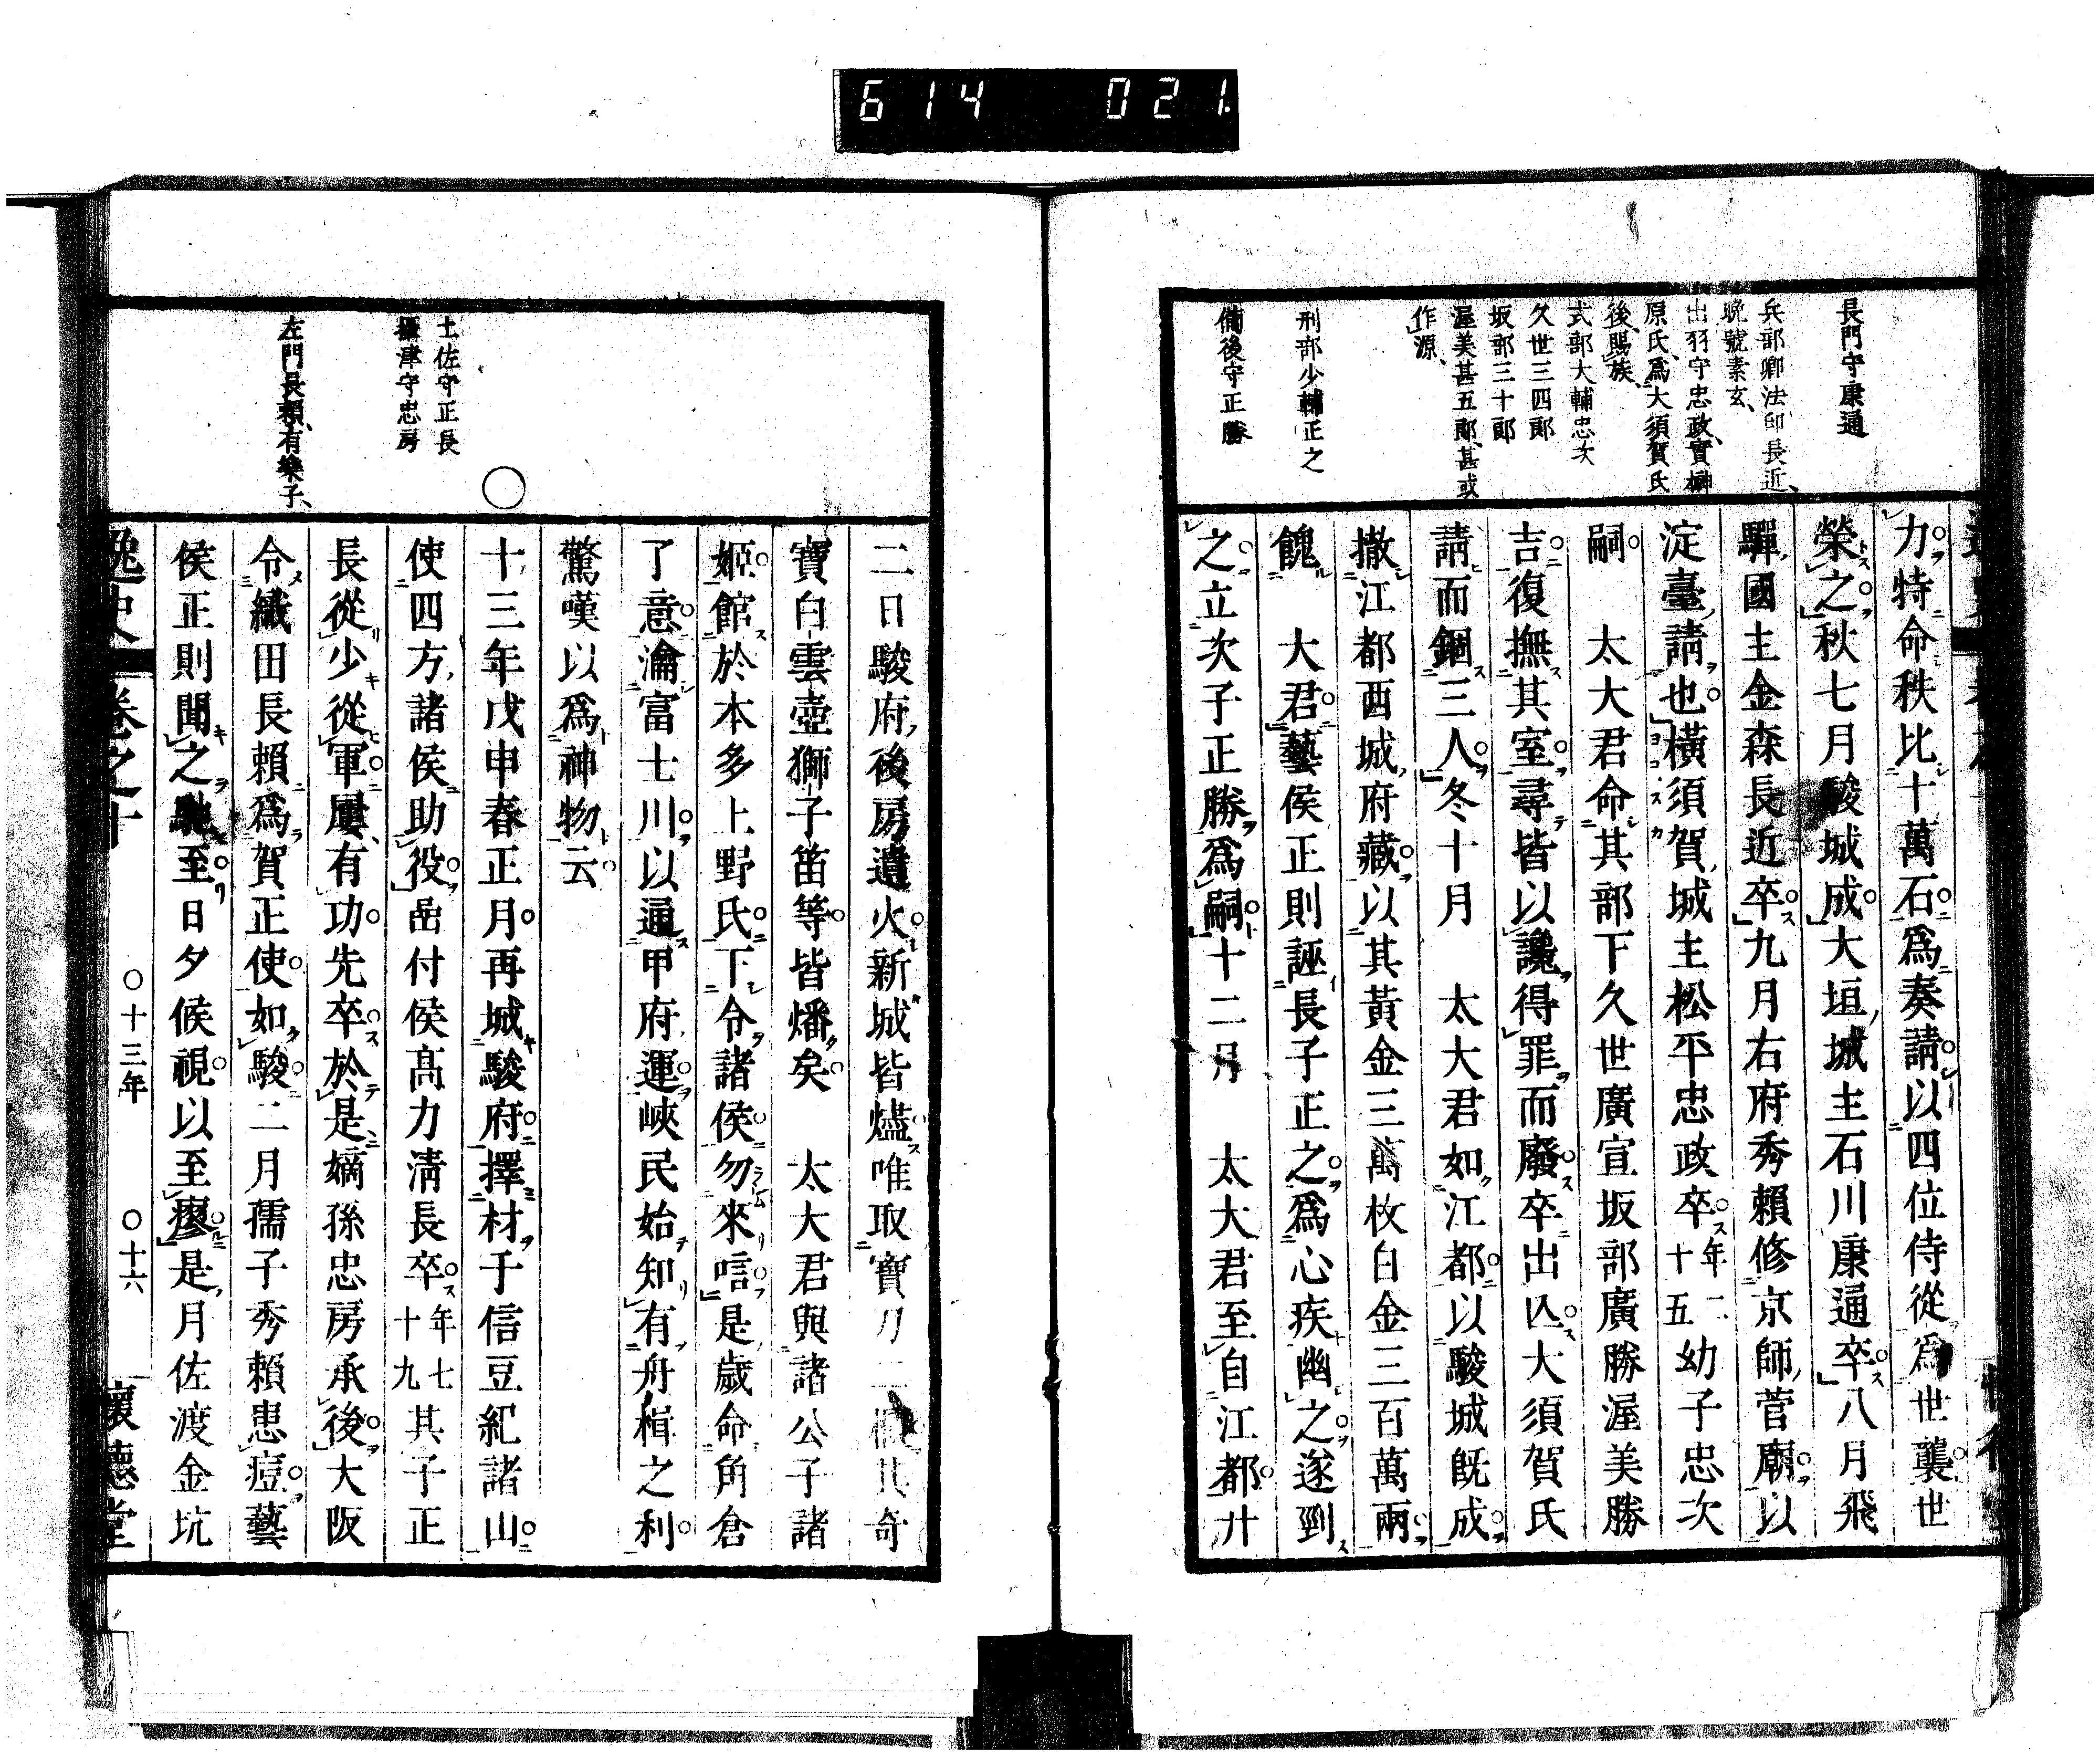 614 021
長門守康通
兵部卿法印長近、
晩號素玄、
出羽守忠政、實榊
原氏、爲大須賀氏
後、賜族、
式部大輔忠次
久世三四郎
坂部三十郎
渥美甚五郎、甚或
作源、
刑部少輔正之
備後守正勝
力特命秩比十萬石爲奏請以四位侍從爲世襲世
榮之秋七月駿城成大垣城主石川康通卒八月飛
驒國主金森長近卒九月右府秀賴修京師菅廟以
淀臺請也橫須賀城主松平忠政卒年二十五幼子忠次
嗣 太大君命其部下久世廣宣坂部廣勝渥美勝
吉復撫其室尋皆以讒得罪而廢卒出亾大須賀氏
請而錮三人冬十月 太大君如江都以駿城既成
撤江都西城府藏以其黃金三萬枚白金三百萬兩
餽 大君藝侯正則誣長子正之爲心疾幽之遂剄
之立次子正勝爲嗣十二月 太大君至自江都廾
土佐守正長
攝津守忠房
左門長賴、有樂子、
二日駿府後房遺火新城皆燼唯取寶刀二其奇
寶白雲壺獅子笛等皆燔矣 太大君與諸公子諸
姬館於本多上野氏下令諸侯勿來唁是歲命角倉
了意瀹富士川以通甲府運峽民始知有舟楫之利
驚嘆以爲神物云
○
十三年戊申春正月再城駿府擇材于信豆紀諸山
使四方諸侯助役嵒付侯髙力淸長卒年七十九其子正
長從少從軍屢有功先卒於是嫡孫忠房承後大阪
令織田長賴爲賀正使如駿二月孺子秀賴患痘藝
侯正則聞之馳至日夕候視以至瘳是月佐渡金坑
逸史 卷之十 ○十三年 ○十六 懷德堂